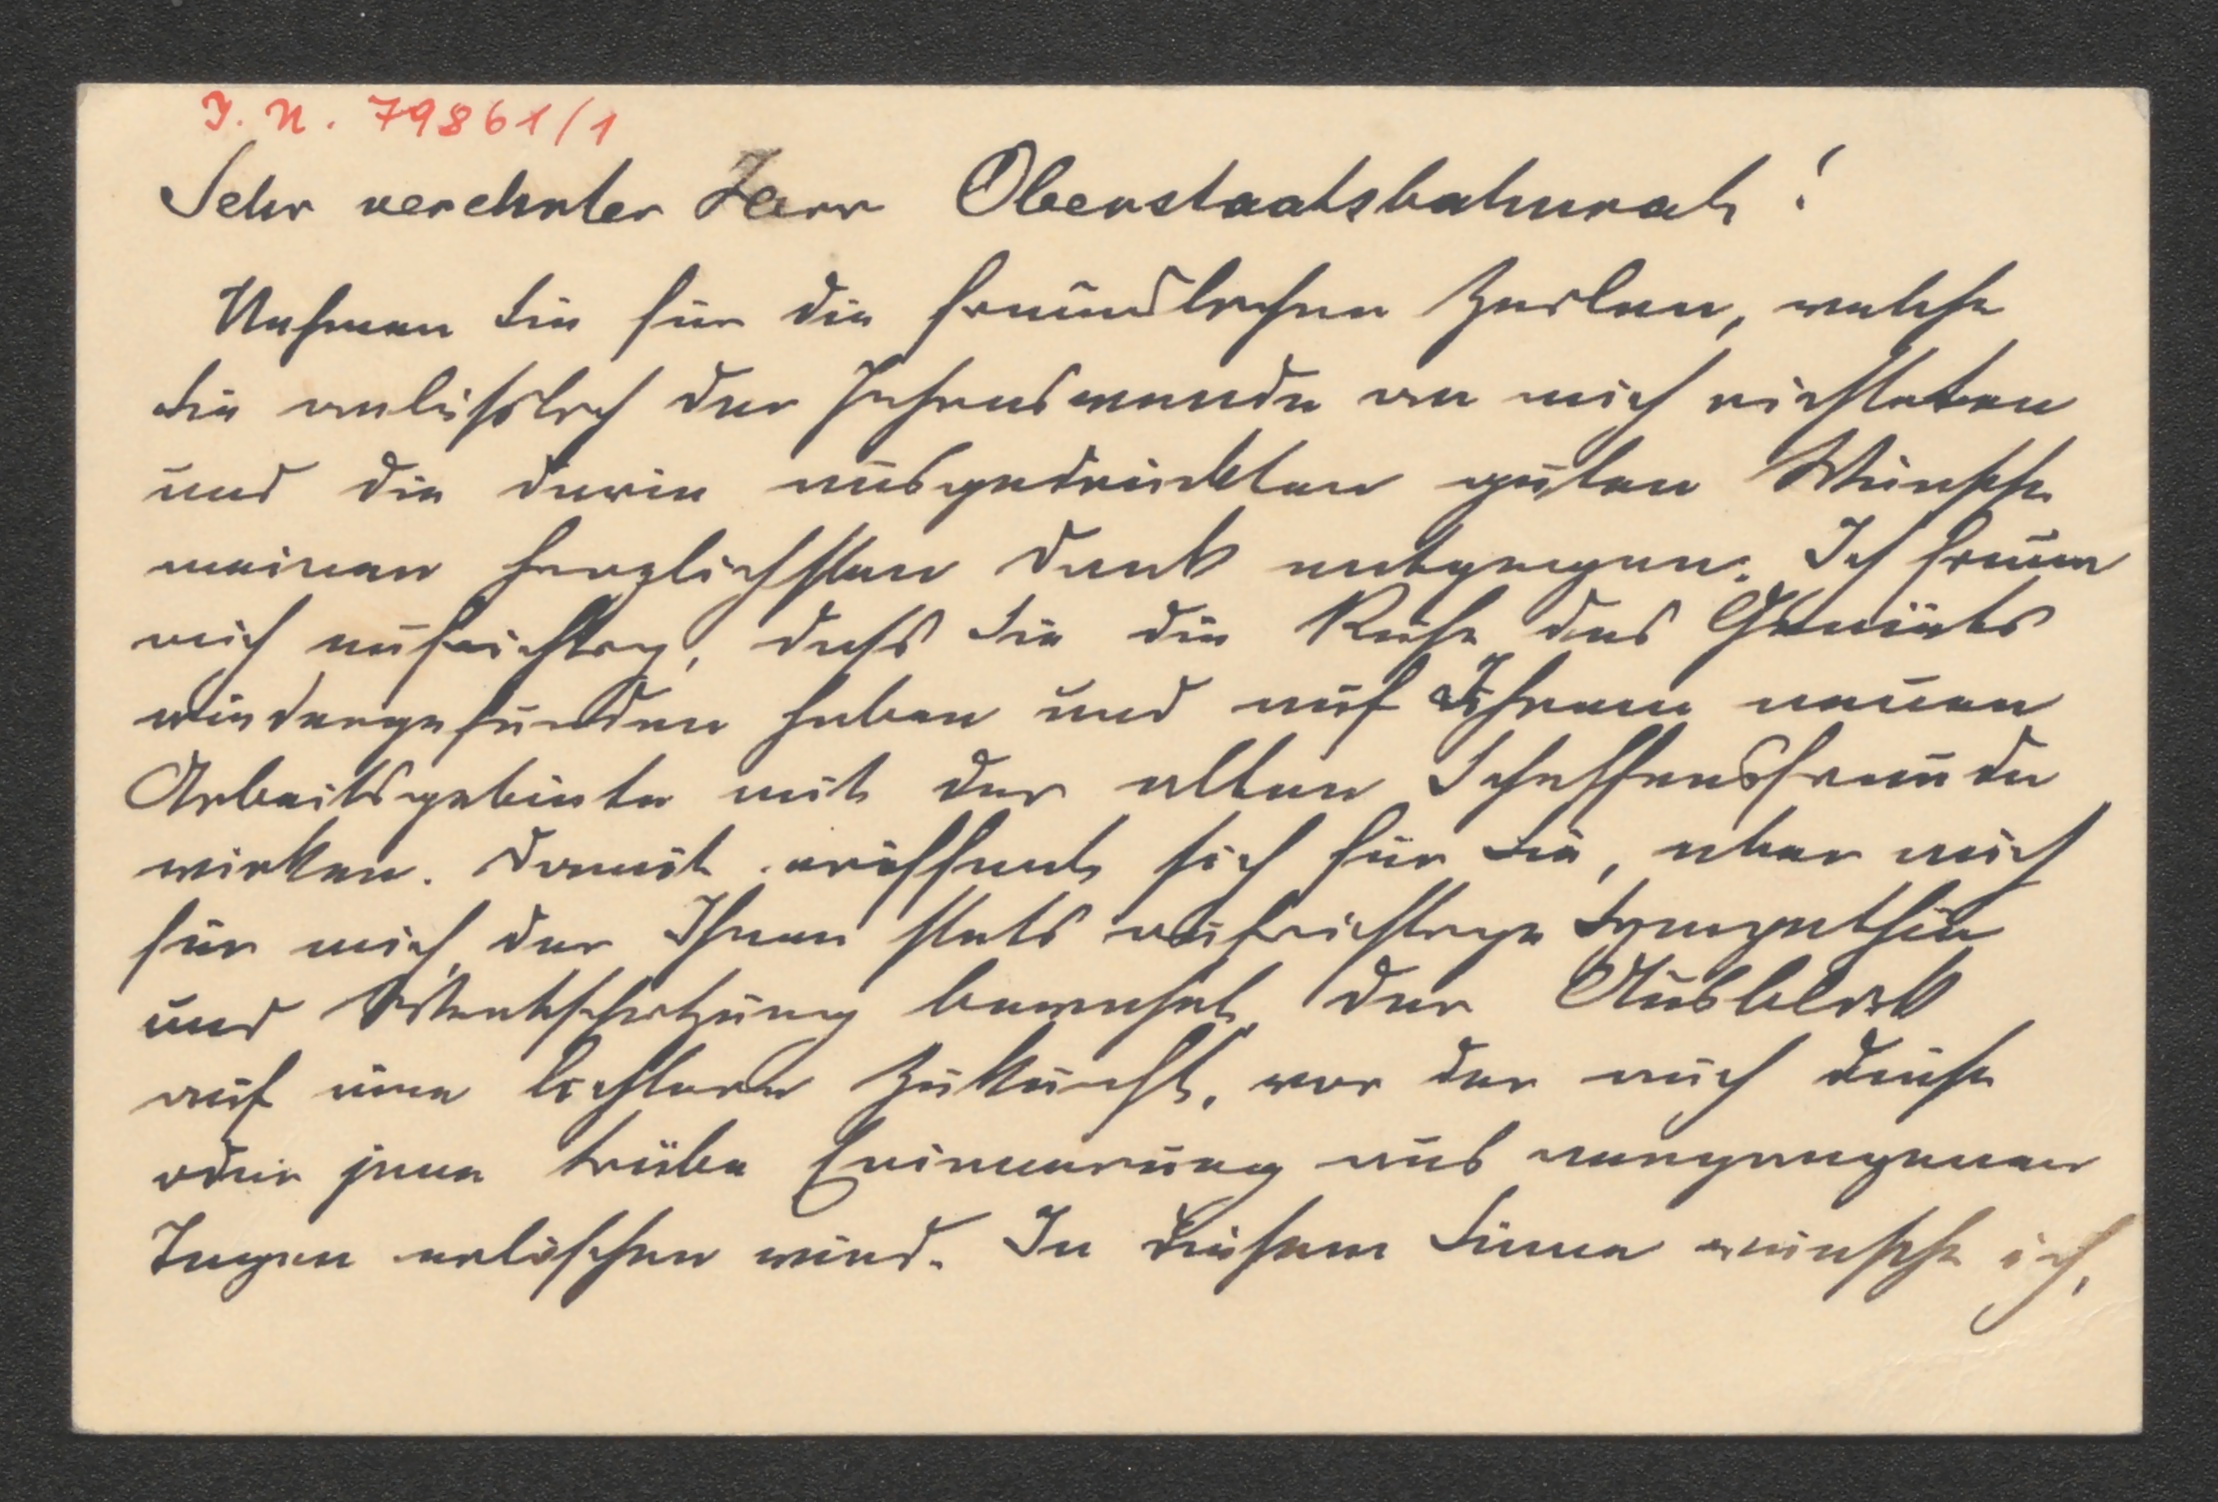 I. N. 79861/1
Sehr verehrter Herr Oberstaatsbahnrat!
Nehmen Sie für die freundlichen Zeilen, welche
Sie anlässlich der Jahreswende an mich richteten
und die darin ausgedrückten guten Wünsche
meinen herzlichsten Dank entgegen. Ich freue
mich aufrichtig, dass Sie die Ruhe des Gemüts
wiedergefunden haben und auf Ihrem neuen
Arbeitsgebiete mit der alten Schaffensfreude
wirken. Damit eröffnet sich für Sie, aber auch
für mich, der Ihnen stets aufrichtige Sympathie
und Wertschätzung bewahrt, der Ausblick
auf eine lichtere Zukunft, vor der auch diese
oder jene trübe Erinnerung aus vergangenen
Tagen erlöschen wird. In diesem Sinne wünsche ich,